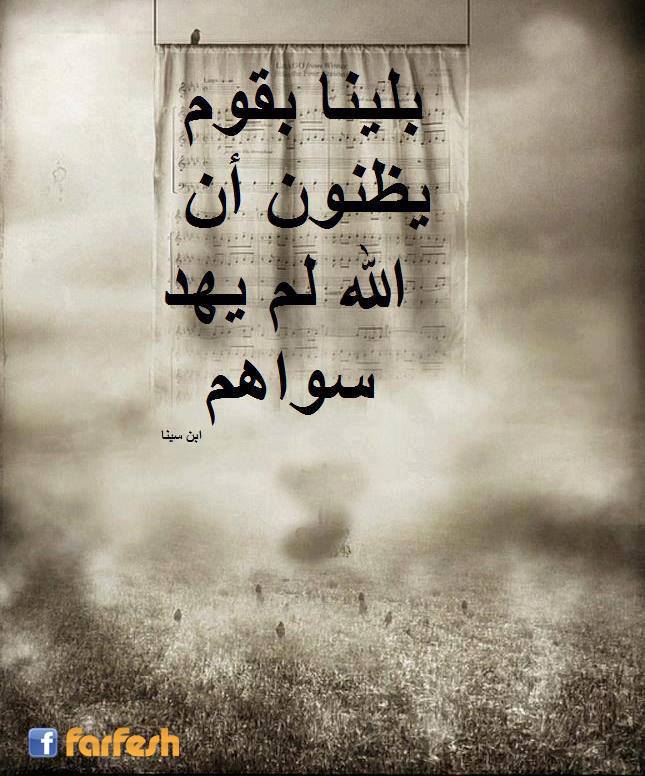 بلينا بقوم
يظنون أن
الله لم يهد
سواهم
ابن سينا
farfesh